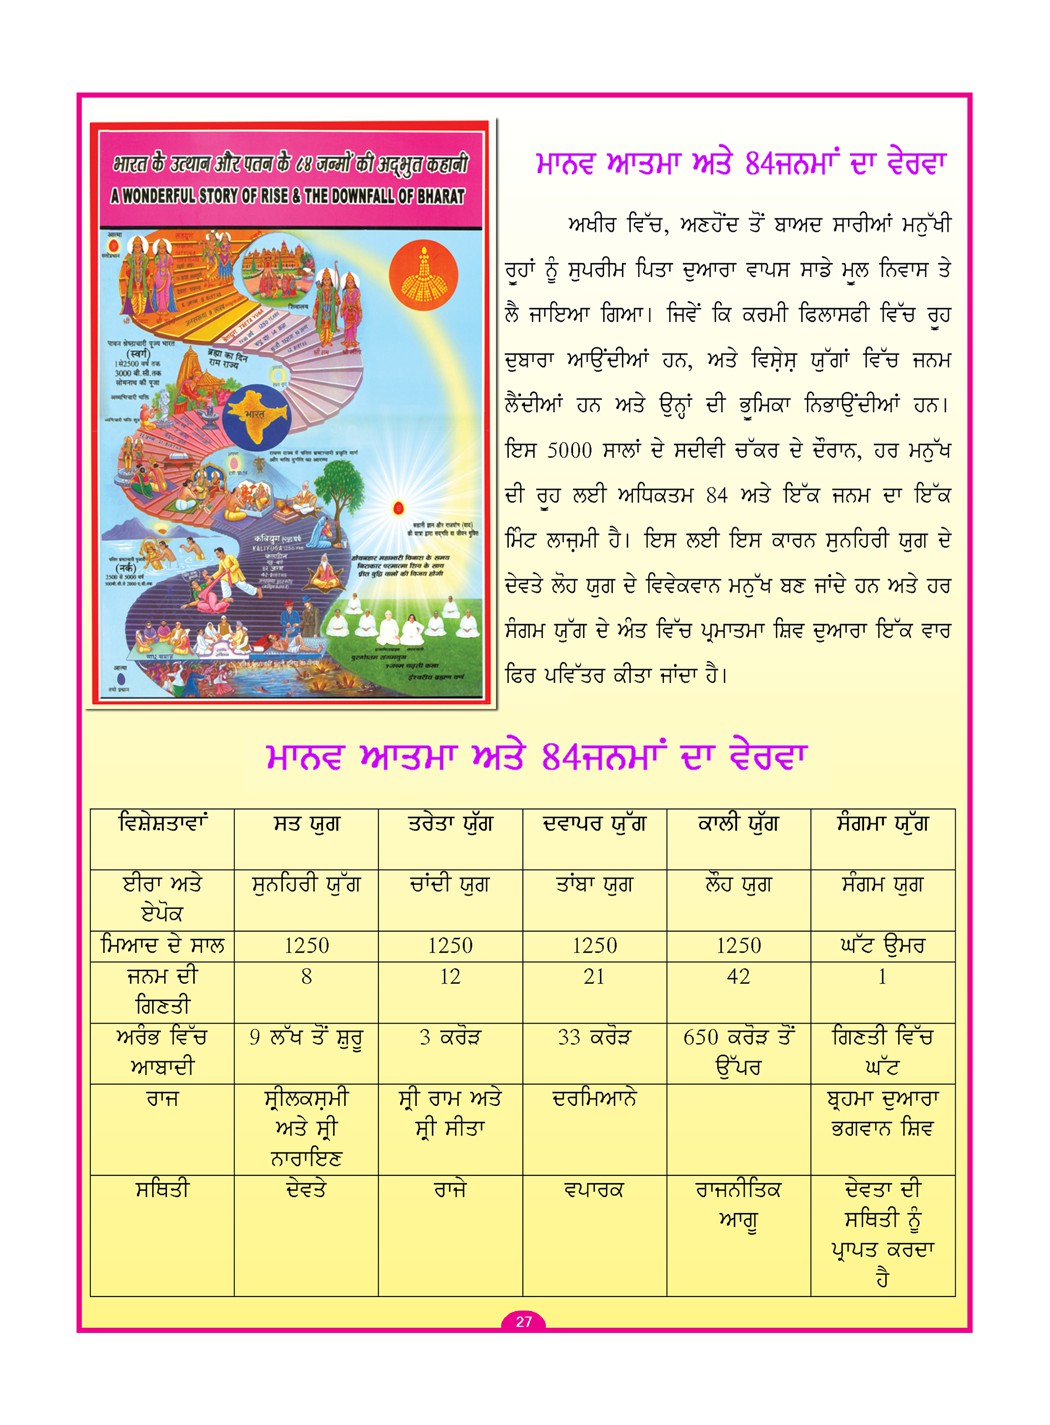 भारत के उत्थान और पतन के ८४ जन्मों की अद्भुत कहानी
A WONDERFUL STORY OF RISE & THE DOWNFALL OF BHARAT
आत्मा
शिवालय
पावन श्रेष्ठाचारी पूज्य भारत
(स्वर्ग)
3000 बी.सी.तक
सोमनाथ की पूजा
ब्रह्मा का दिन
राम राज्य
भारत
कलियुग
(नर्क)
साधु समाज
आत्मा
ਮਾਨਵ ਆਤਮਾ ਅਤੇ 84ਜਨਮਾਂ ਦਾ ਵੇਰਵਾ
ਅਖੀਰ ਵਿੱਚ, ਅਣਹੋਂਦ ਤੋਂ ਬਾਅਦ ਸਾਰੀਆਂ ਮਨੁੱਖੀ
ਰੂਹਾਂ ਨੂੰ ਸੁਪਰੀਮ ਪਿਤਾ ਦੁਆਰਾ ਵਾਪਸ ਸਾਡੇ ਮੂਲ ਨਿਵਾਸ ਤੇ
ਲੈ ਜਾਇਆ ਗਿਆ। ਜਿਵੇਂ ਕਿ ਕਰਮੀ ਫਿਲਾਸਫੀ ਵਿੱਚ ਰੂਹ
ਦੁਬਾਰਾ ਆਉਂਦੀਆਂ ਹਨ, ਅਤੇ ਵਿਸ਼ੇਸ਼ ਯੁੱਗਾਂ ਵਿੱਚ ਜਨਮ
ਲੈਂਦੀਆਂ ਹਨ ਅਤੇ ਉਨ੍ਹਾਂ ਦੀ ਭੂਮਿਕਾ ਨਿਭਾਉਂਦੀਆਂ ਹਨ।
ਇਸ 5000 ਸਾਲਾਂ ਦੇ ਸਦੀਵੀ ਚੱਕਰ ਦੇ ਦੌਰਾਨ, ਹਰ ਮਨੁੱਖ
ਦੀ ਰੂਹ ਲਈ ਅਧਿਕਤਮ 84 ਅਤੇ ਇੱਕ ਜਨਮ ਦਾ ਇੱਕ
ਮਿੰਟ ਲਾਜ਼ਮੀ ਹੈ। ਇਸ ਲਈ ਇਸ ਕਾਰਨ ਸੁਨਹਿਰੀ ਯੁਗ ਦੇ
ਦੇਵਤੇ ਲੋਹ ਯੁਗ ਦੇ ਵਿਵੇਕਵਾਨ ਮਨੁੱਖ ਬਣ ਜਾਂਦੇ ਹਨ ਅਤੇ ਹਰ
ਸੰਗਮ ਯੁੱਗ ਦੇ ਅੰਤ ਵਿੱਚ ਪ੍ਰਮਾਤਮਾ ਸ਼ਿਵ ਦੁਆਰਾ ਇੱਕ ਵਾਰ
ਫਿਰ ਪਵਿੱਤਰ ਕੀਤਾ ਜਾਂਦਾ ਹੈ।
ਮਾਨਵ ਆਤਮਾ ਅਤੇ 84ਜਨਮਾਂ ਦਾ ਵੇਰਵਾ
ਵਿਸ਼ੇਸ਼ਤਾਵਾਂ ਸਤ ਯੁਗ ਤਰੇਤਾ ਯੁੱਗ ਦਵਾਪਰ ਯੁੱਗ ਕਾਲੀ ਯੁੱਗ ਸੰਗਮਾ ਯੁੱਗ
ਈਰਾ ਅਤੇ ਸੁਨਹਿਰੀ ਯੁੱਗ ਚਾਂਦੀ ਯੁਗ ਤਾਂਬਾ ਯੁਗ ਲੌਹ ਯੁਗ ਸੰਗਮ ਯੁਗ
ਏਪੋਕ
ਮਿਆਦ ਦੇ ਸਾਲ 1250 1250 1250 1250 ਘੱਟ ਉਮਰ
ਜਨਮ ਦੀ 8 12 21 42 1
ਗਿਣਤੀ
ਅਰੰਭ ਵਿੱਚ 9 ਲੱਖ ਤੋਂ ਸ਼ੁਰੂ 3 ਕਰੋੜ 33 ਕਰੋੜ 650 ਕਰੋੜ ਤੋਂ ਗਿਣਤੀ ਵਿੱਚ
ਆਬਾਦੀ ਉੱਪਰ ਘੱਟ
ਰਾਜ ਸ਼੍ਰੀਲਕਸ਼ਮੀ ਸ਼੍ਰੀ ਰਾਮ ਅਤੇ ਦਰਮਿਆਨੇ ਬ੍ਰਹਮਾ ਦੁਆਰਾ
ਅਤੇ ਸ਼੍ਰੀ ਸ਼੍ਰੀ ਸੀਤਾ ਭਗਵਾਨ ਸ਼ਿਵ
ਨਾਰਾਇਣ
ਸਥਿਤੀ ਦੇਵਤੇ ਰਾਜੇ ਵਪਾਰਕ ਰਾਜਨੀਤਿਕ ਦੇਵਤਾ ਦੀ
ਆਗੂ ਸਥਿਤੀ ਨੂੰ
ਪ੍ਰਾਪਤ ਕਰਦਾ
ਹੈ
27